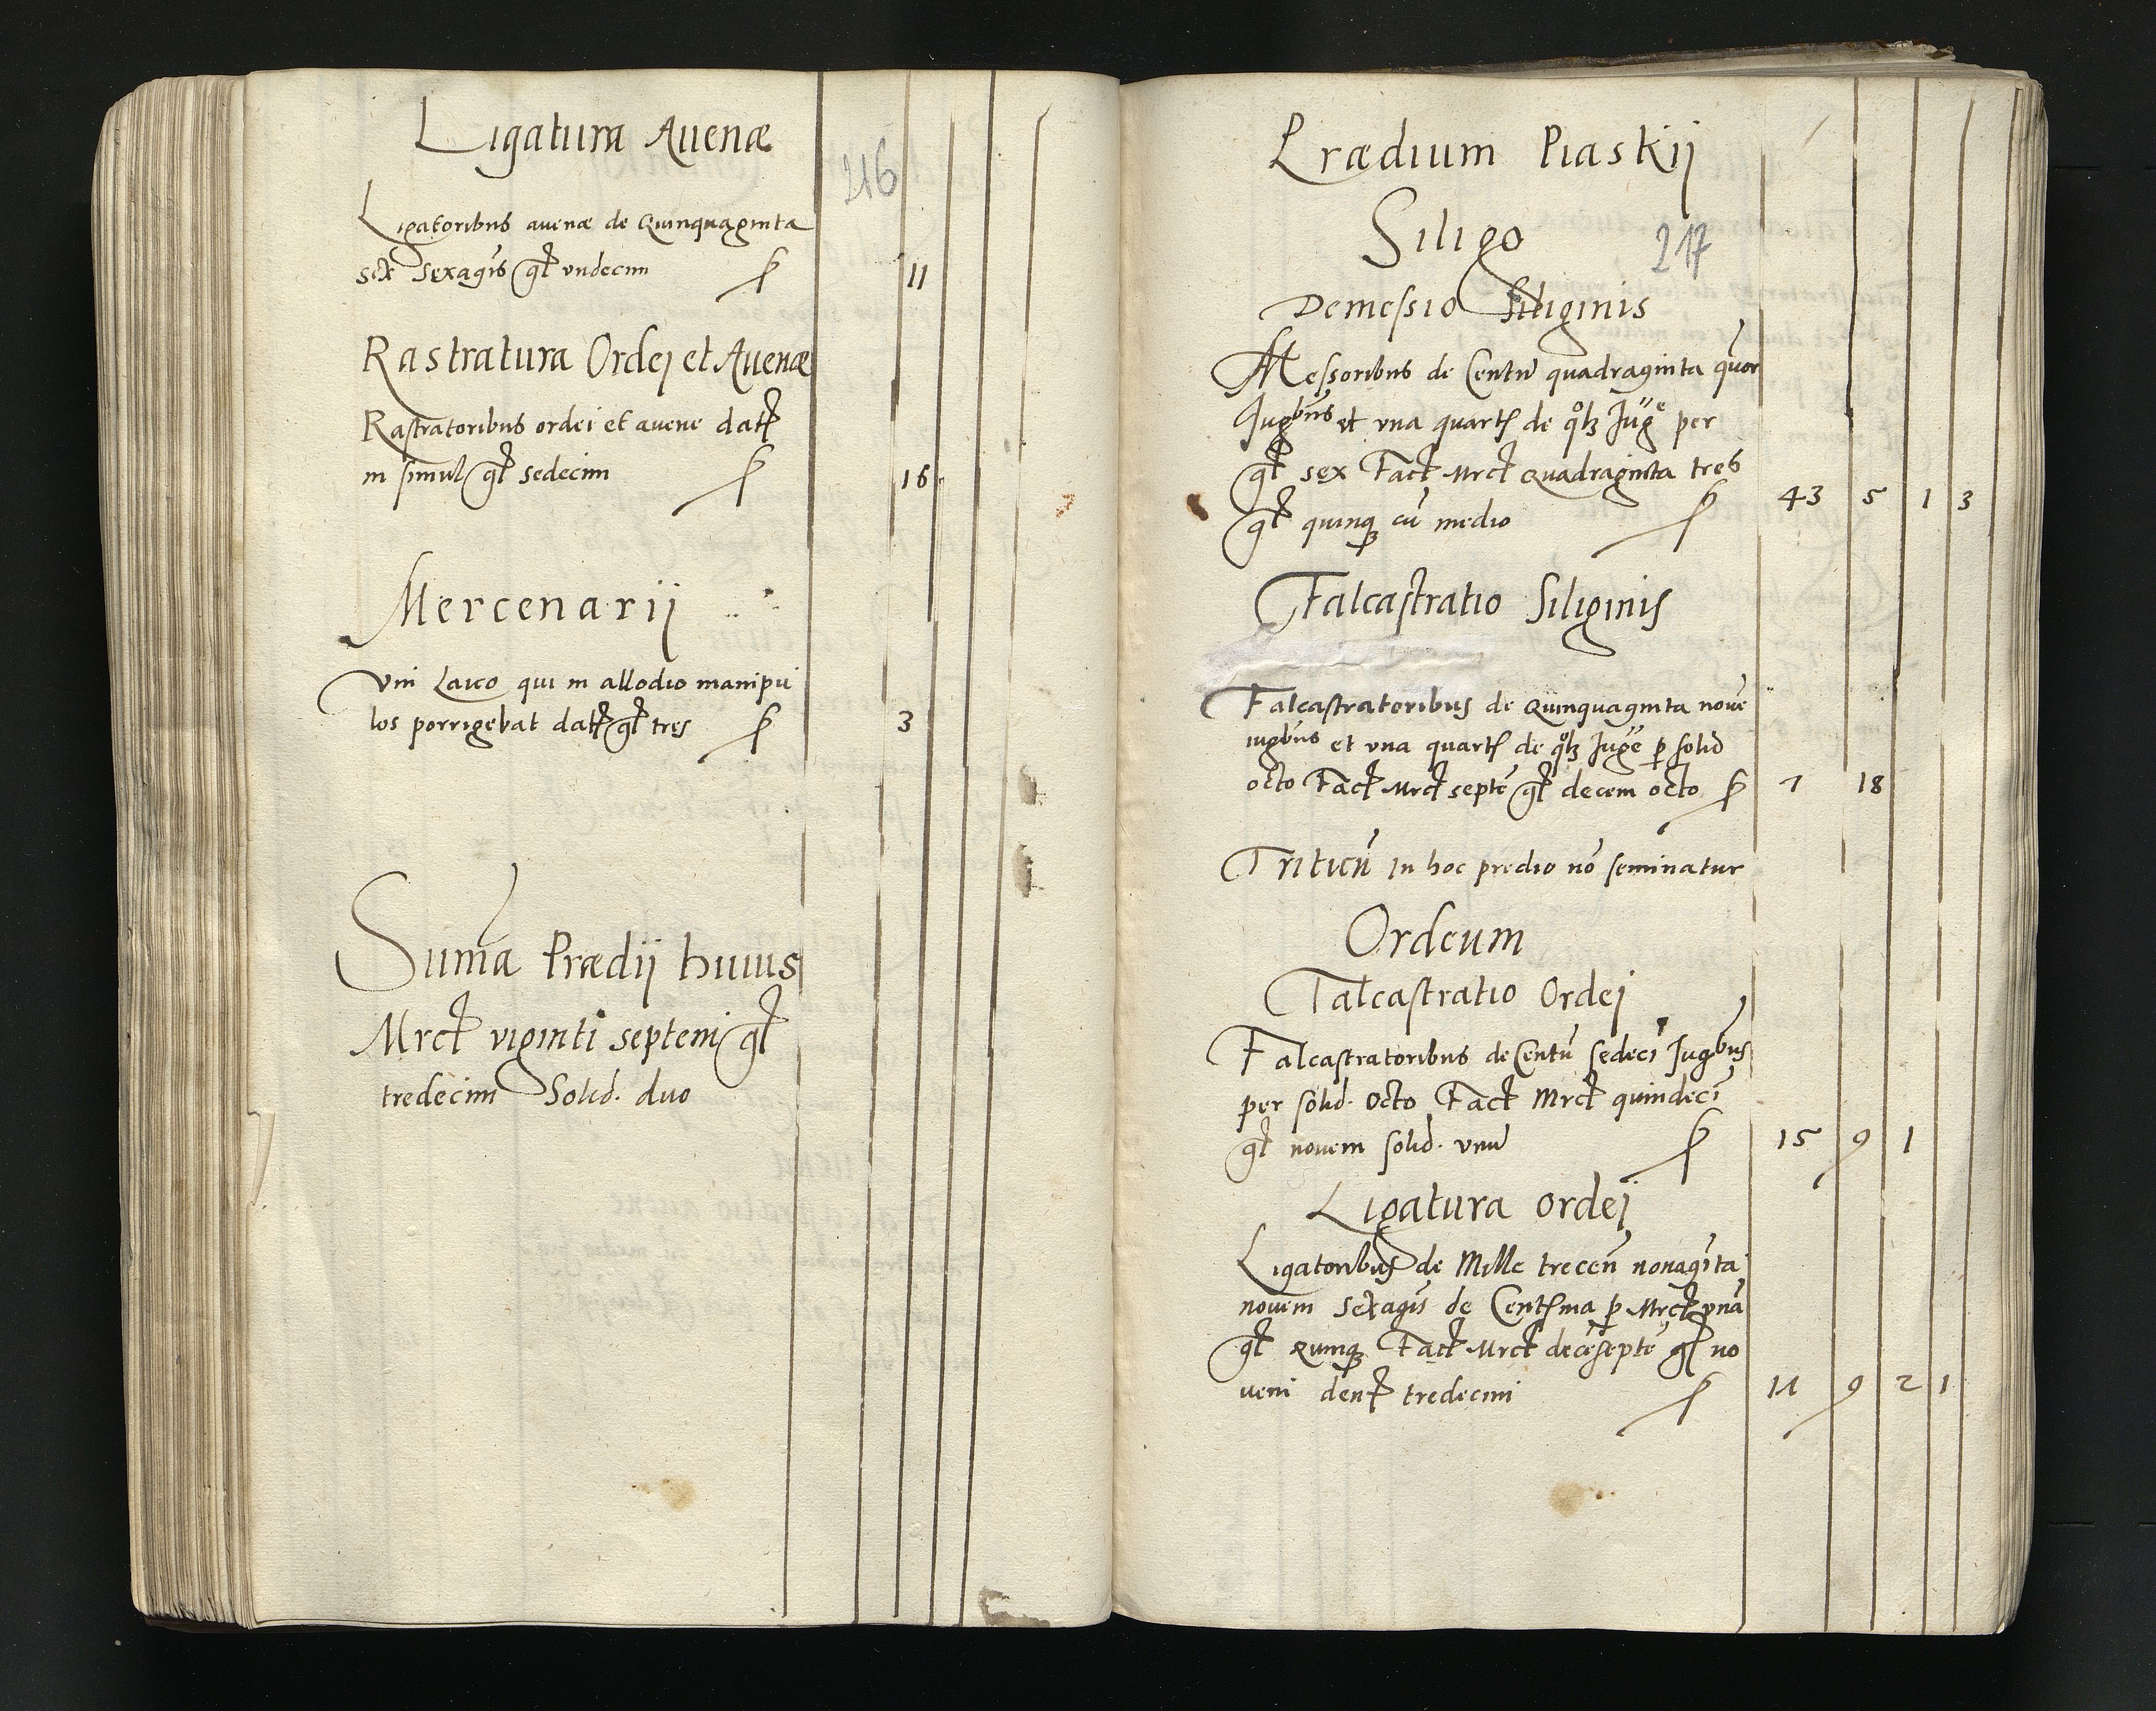 Ligatura Auenæ
216
Ligatoribus auenæ de Quinquaginta
sex sexagis gł vndecim ꝑ 11
Rastratura Ordej et Auenæ
Rastratoribus ordei et auene datł
in simul gł sedecim ꝑ 16
Mercenarij
Vni Laico qui in allodio manipu
los porrigebat datł gł tres ꝑ 3
Sum̄a Prædij huius
Mrcł viginti septem gł
tredecim Solid. duo
Prædium Piaskij
Siligo
217
Demessio Siliginis
Messoribus de Centū quadraginta quor
Jugbus et vna quartł de qolꝫ Juge per
gł sex Facł Mrcł Quadraginta tres
gł quinqꝫ cū medio ꝑ 43 5 1 3
Falcastratio Siliginis
Falcastratoribus de Quinquaginta nouē
iugbus et vna quartł de qolꝫ Juge ꝑ solid
octo Facł Mrcł septē gł decem octo ꝑ 7 18
Triticū In hoc predio nō seminatur
Ordeum
Falcastratio Ordej
Falcastratoribus de Centū sedecī Jugbus
per solid. octo Facł Mrcł quindecī
gł nouem solid. vnū ꝑ 15 9 1
Ligatura ordej
Ligatoribus de Mille trecen̄ nonagīta
novem sexagis de Centłma ꝑ Mrcł vnā
gł Quinqꝫ Facł Mrcł decēseptē gł no
uem denł tredecim ꝑ 17 9 2 1